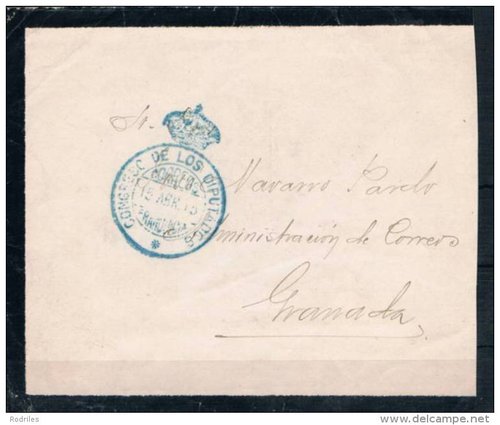 Sr.
Navarro Pardo
Administración de Correos
Granada
CONGRESO DE LOS DIPUTADOS
CORREOS
15 ABR
Rodriles
www.delcampe.net